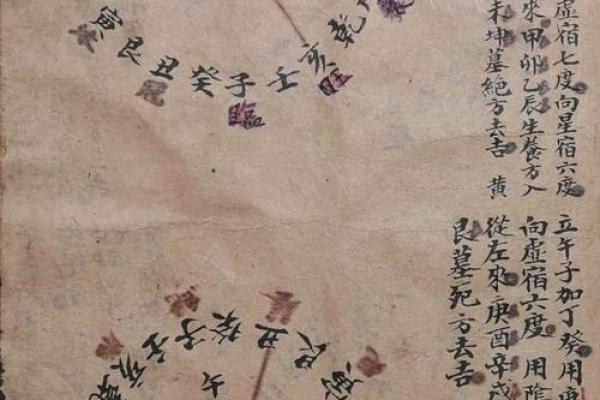 虛宿七度向星宿六度
來甲卯乙辰生養方入
未坤墓絕方去吉 黃
寅艮丑癸子壬亥乾
臨
立午子加丁癸用庚
向虛宿六度 用陰
從左來庚酉辛戌
艮墓死方去吉
艮丑癸子壬亥乾